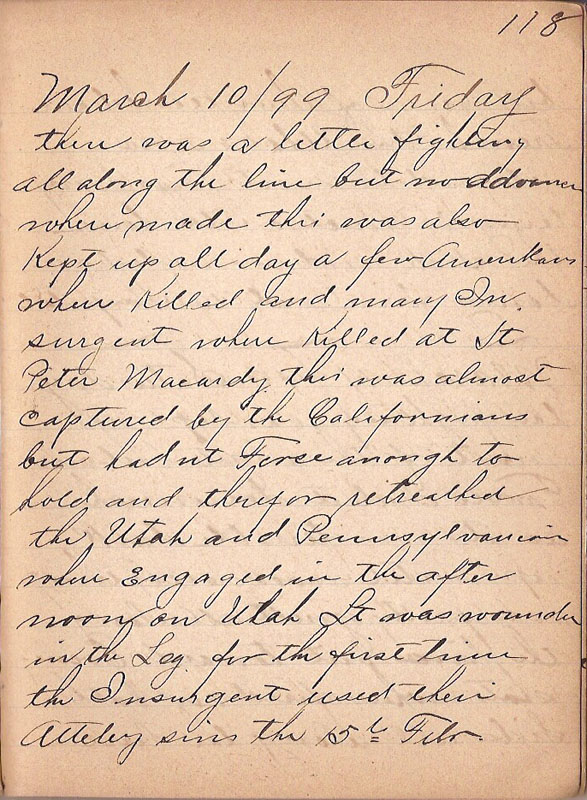 118
March 10/99 Friday
there was a little fighting
all along the line but no addvance
where made this was also
Kept up all day a few Amerikans
where Killed and many In-
surgent where Killed at St
Peter Macardy this was almost
captured by the Californians
but hadnt Forse anough to
hold and threfor retreathed
the Utah and Pennsylvanian
where Engaged in the after
noon on Utah Lt was wounde
in the Leg for the first time
the Insurgent used their
sins the 15th Febr.